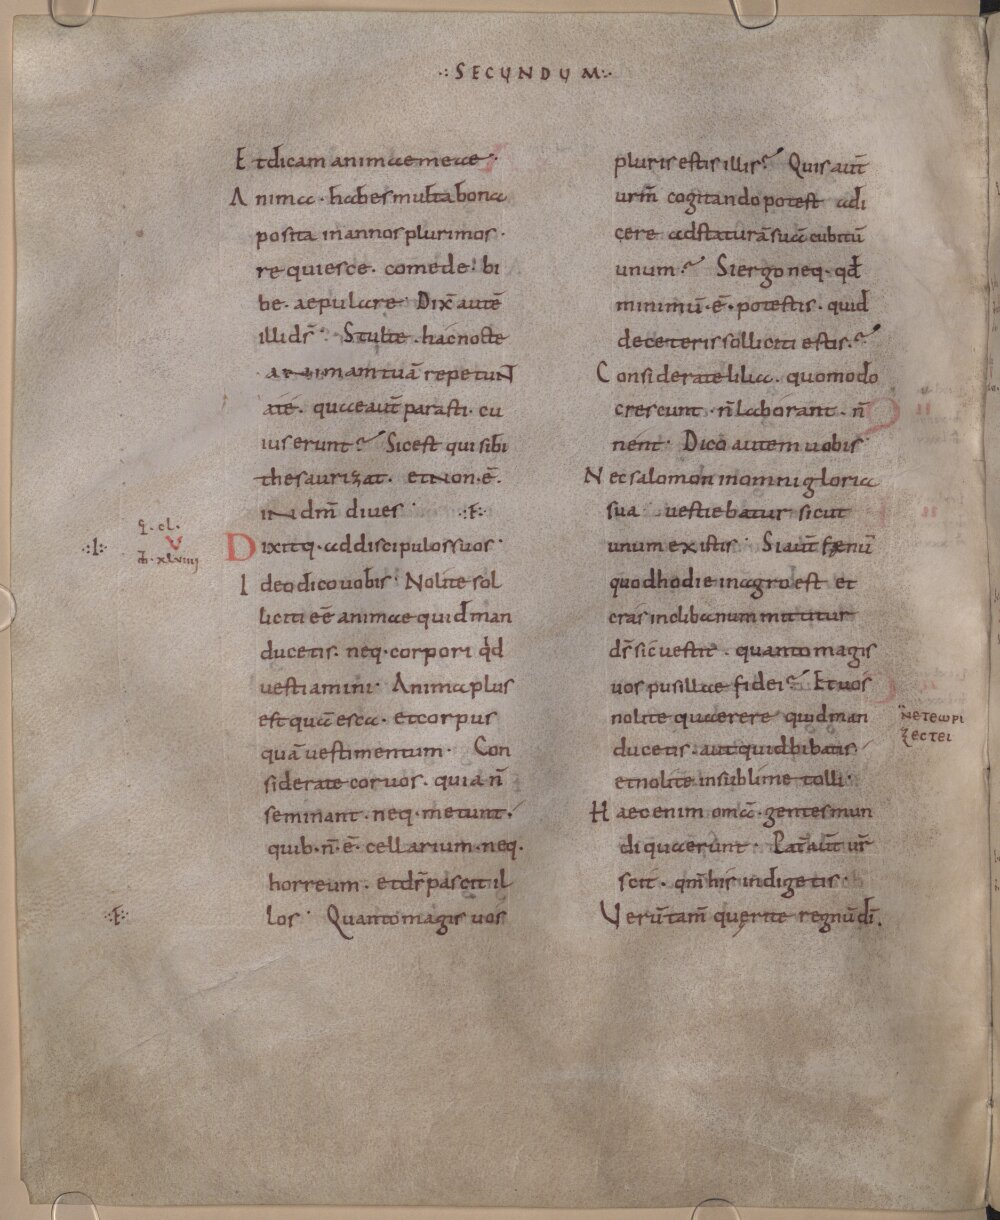 ·:SECUNDUM:·
Et dicam animae meae·
Anima· habes multa bona
posita in annos plurimos·
requiesce· comede· bi
be· aepulare· Dix̄ autē
illi dr̄· Stulte· hac nocte
animam tuā repetuN
t a te· quae aut̄ parasti· cu
ius erunt? Sic est qui sibi
thesaurizat· et non·ē·
in dm̄ dives· ·:F:·
Dixitq· ad discipulos suos·
Ideo dico vobis· Nolite sol
liciti eē animae quid man
ducetis· neq· corpori qđ
vestiamini· Anima plus
est quā esca· et corpus
quā vestimentum· Con
siderate corvos· quia n̄
seminant· neq· metunt·
quib· n̄·ē· cellarium· neq·
horreum· et dr̄ pascit il
los· Quanto magis vos
·:I:·
q̄·cl·
V
·xlviiii
·:F:·
pluris estis illis? Quis aut̄
urm̄ cogitando potest adi
cere ad staturā suā cubitū
unum? Si ergo neq· qđ
minimū·ē· potestis· quid
de ceteris solliciti estis?
Considerate lilia· quomodo
crescunt· n̄ laborant· n̄
nent· Dico autem vobis·
Nec salomon in omni gloria
sua vestiebatur sicut
unum ex istis· Si aut̄ faenū
quod hodie in agro est et
cras in clibanum mittitur
dr̄ sic vestit· quanto magis
vos pusillae fidei? Et vos
nolite quaerere quid man
ducetis· aut quid bibatis·
et nolite in sublime tolli·
Haec enim omā· gentes mun
di quaerunt· Pat̄ aut̄ ur̄
scit· qm̄ his indigetis·
Verūtam̄ querite regnū dī·
ΝΕΤΕωΡΙ
ζΕCΤΕΙ